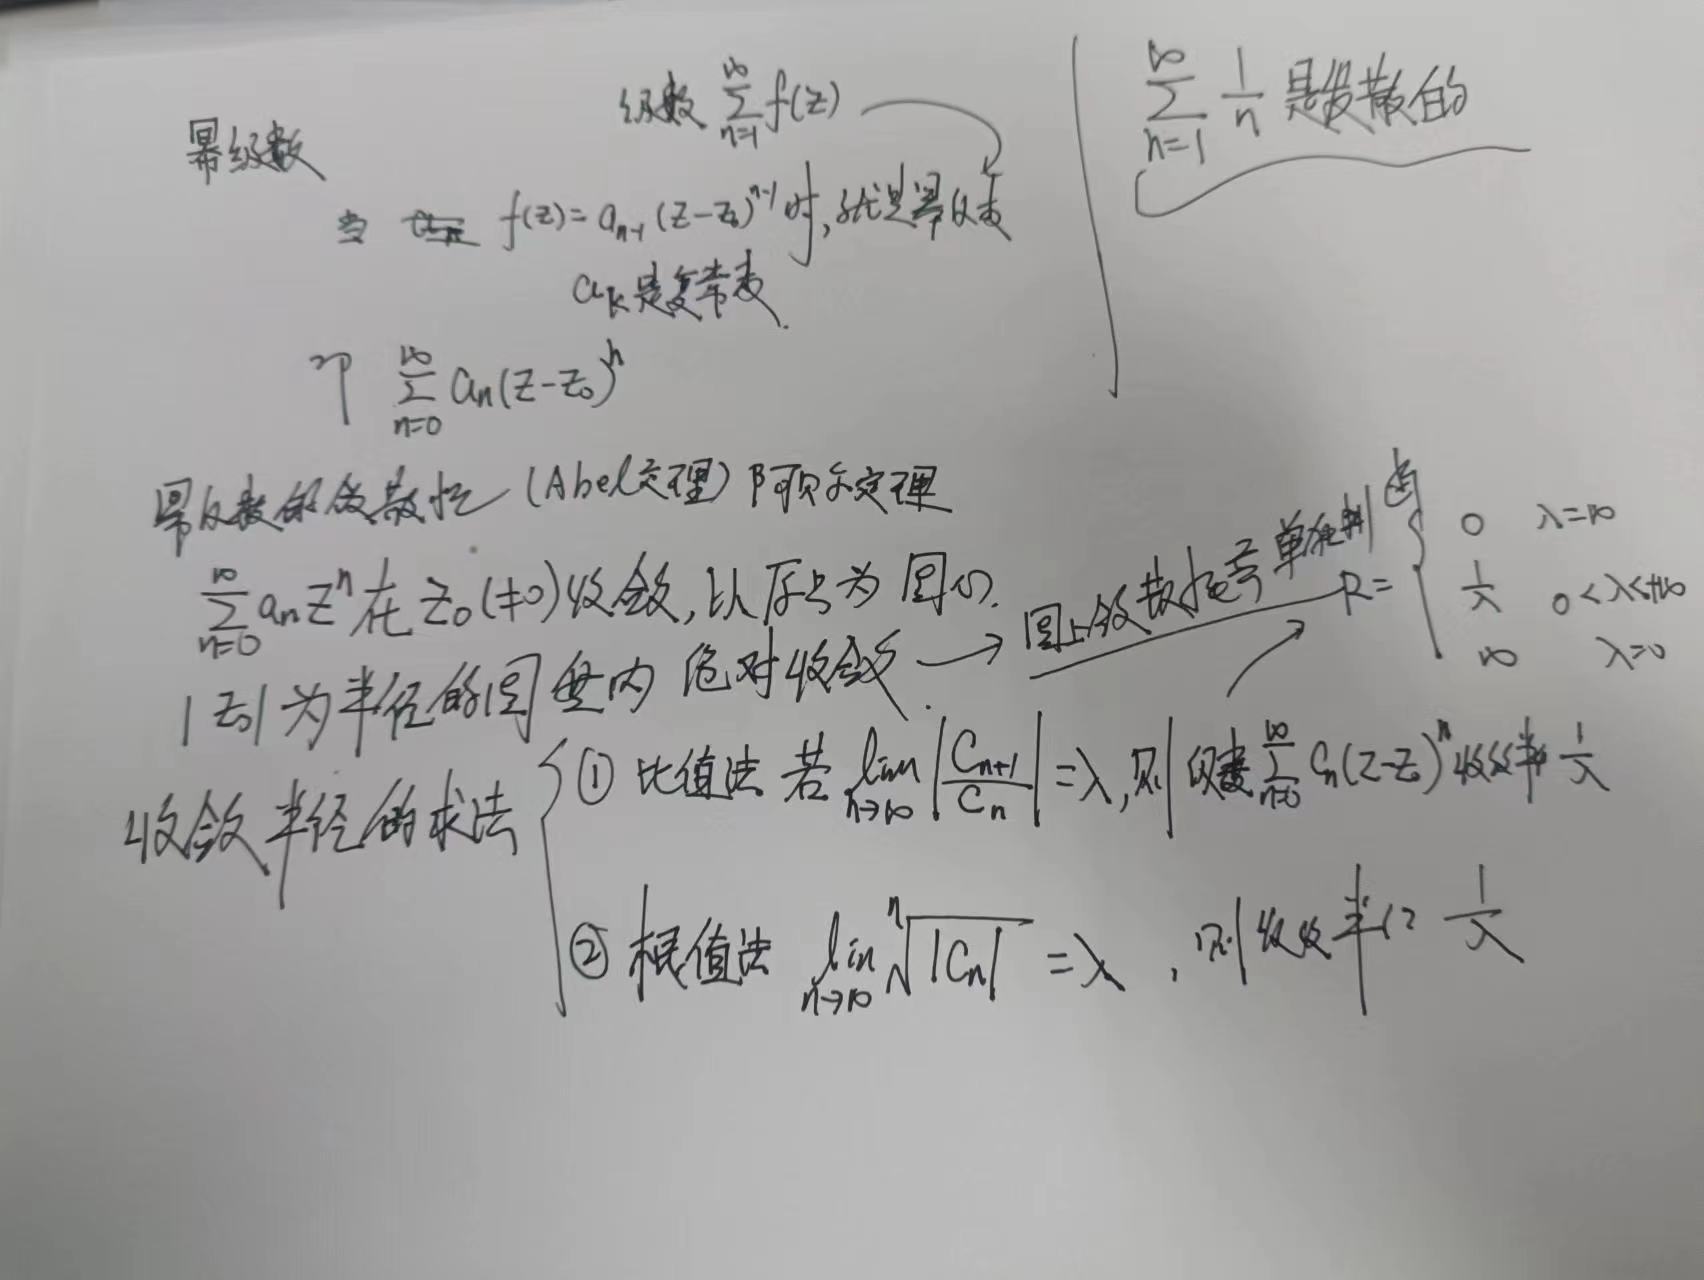 级数 ∑_{n=1}^{∞} f(z)
∑_{n=1}^{∞} 1/n 是发散的
幂级数
当 f(z)=a_{n-1}(z-z_0)^{n-1}时,就是幂级数
a_k是复常数.
即 ∑_{n=0}^{∞} a_n(z-z_0)^n
幂级数的敛散性 (Abel定理) 阿贝尔定理
∑_{n=0}^{∞} a_n z^n 在 z_0(≠0)收敛,以原点为圆心.
|z_0|为半径的圆盘内 绝对收敛. → 圆上敛散性 单独判断
R= { 0 λ=∞
1/λ 0<λ<+∞
∞ λ=0
收敛半径的求法
① 比值法 若 lim_{n→∞} |C_{n+1}/C_n| =λ,则 级数∑_{n=0}^{∞} C_n(z-z_0)^n 收敛半径 1/λ
② 根值法 lim_{n→∞} ⁿ√|C_n| =λ ,则收敛半径 1/λ